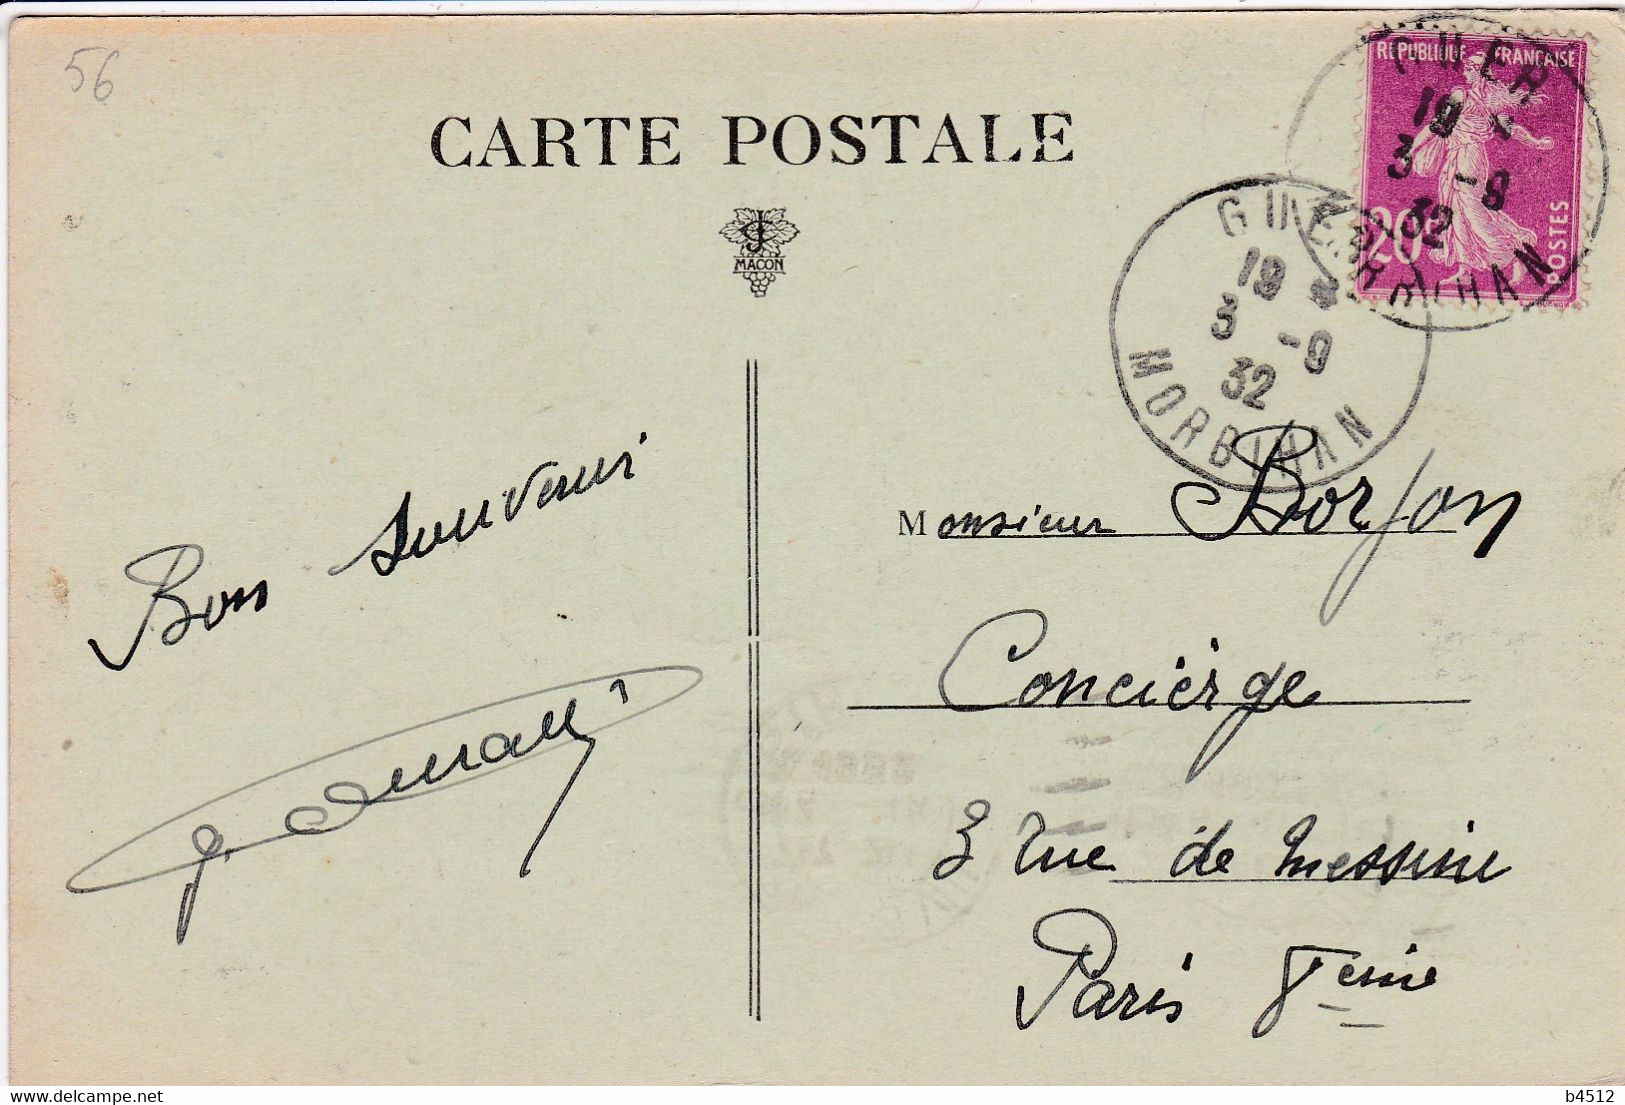 56
CARTE POSTALE
MACON
REPUBLIQUE FRANÇAISE
20c
POSTES
GUER
19
3 -9
32
MORBIHAN
GUER
19
3 -9
32
MORBIHAN
Bon souvenir
Monsieur Borjon
Concierge
3 rue de Messine
Paris 8eme
delcampe.net
b4512